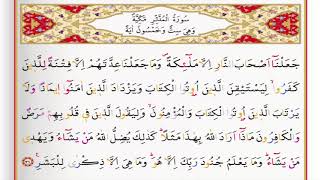 سُورَةُ الْمُدَّثِّرِ مَكِّيَّةٌ
وَهِيَ سِتٌّ وَخَمْسُونَ اٰيَةً
جَعَلْنَٓا اَصْحَابَ النَّارِ اِلَّا مَلٰٓئِكَةًۖ وَمَا جَعَلْنَا عِدَّتَهُمْ اِلَّا فِتْنَةً لِلَّذٖينَ
كَفَرُواۙ لِيَسْتَيْقِنَ الَّذٖينَ اُو۫تُوا الْكِتَابَ وَيَزْدَادَ الَّذٖينَ اٰمَنُٓوا اٖيمَانًا وَلَا
يَرْتَابَ الَّذٖينَ اُو۫تُوا الْكِتَابَ وَالْمُؤْمِنُونَۙ وَلِيَقُولَ الَّذٖينَ فٖي قُلُوبِهِمْ مَرَضٌ
وَالْكَافِرُونَ مَاذَٓا اَرَادَ اللّٰهُ بِهٰذَا مَثَلًاۜ كَذٰلِكَ يُضِلُّ اللّٰهُ مَنْ يَشَٓاءُ وَيَهْدٖي
مَنْ يَشَٓاءُۜ وَمَا يَعْلَمُ جُنُودَ رَبِّكَ اِلَّا هُوَۜ وَمَا هِيَ اِلَّا ذِكْرٰى لِلْبَشَرِ